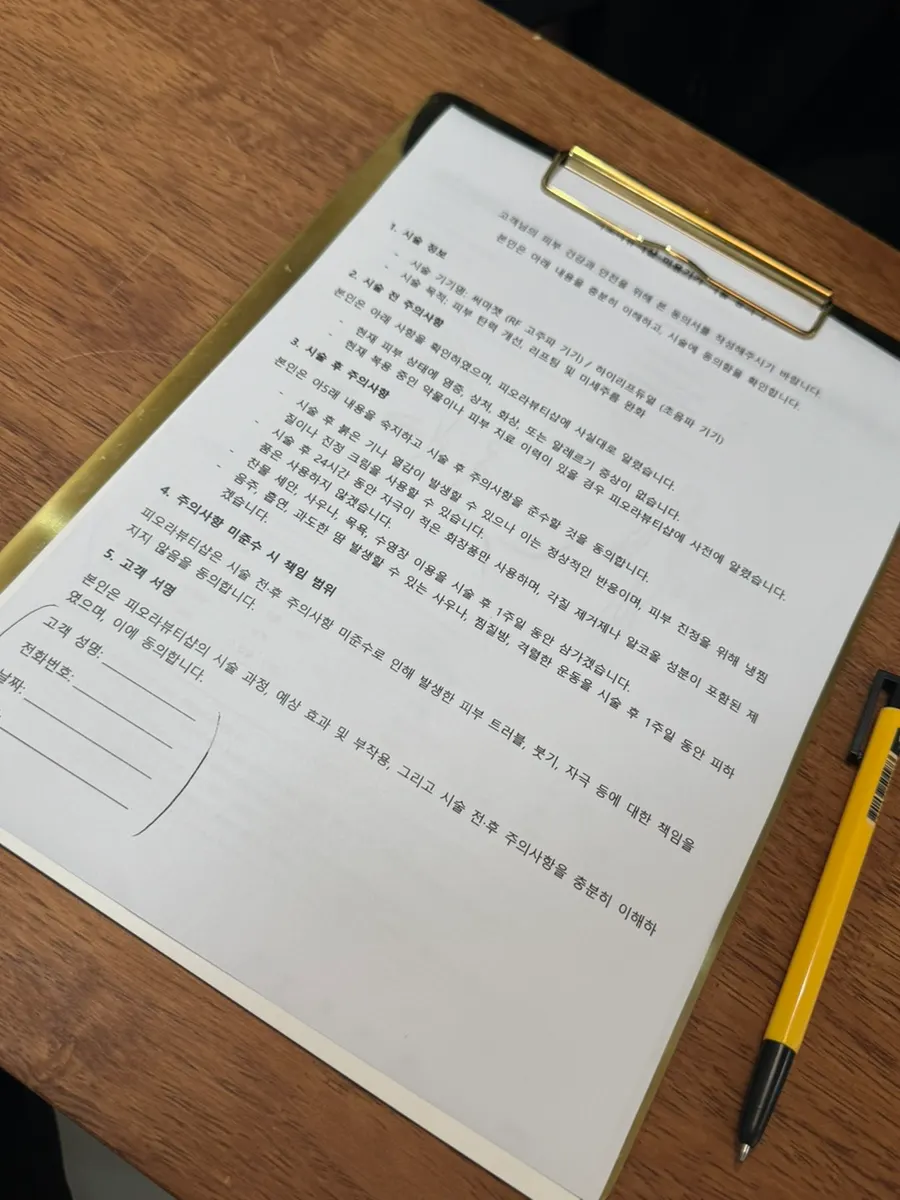 고객님의 피부 건강과 안전을 위해 본 동의서를 작성해주시기 바랍니다.
본인은 아래 내용을 충분히 이해하고, 시술에 동의함을 확인합니다.
1. 시술 정보
- 시술 기기명: 써마젯 (RF 고주파 기기) / 하이리프듀얼 (초음파 기기)
- 시술 목적: 피부 탄력 개선, 리프팅 및 미세주름 완화
2. 시술 전 주의사항
본인은 아래 사항을 확인하였으며, 피오라뷰티샵에 사실대로 알렸습니다.
- 현재 피부 상태에 염증, 상처, 화상, 또는 알레르기 증상이 없습니다.
- 현재 복용 중인 약물이나 피부 치료 이력이 있을 경우 피오라뷰티샵에 사전에 알렸습니다.
3. 시술 후 주의사항
본인은 아5래 내용을 숙지하고 시술 후 주의사항을 준수할 것을 동의합니다.
- 시술 후 붉은 기나 열감이 발생할 수 있으나 이는 정상적인 반응이며, 피부 진정을 위해 냉찜
질이나 진정 크림을 사용할 수 있습니다.
- 시술 후 24시간 동안 자극이 적은 화장품만 사용하며, 각질 제거제나 알코올 성분이 포함된 제
품은 사용하지 않겠습니다.
- 찬물 세안, 사우나, 목욕, 수영장 이용을 시술 후 1주일 동안 삼가겠습니다.
- 음주, 흡연, 과도한 땀 발생할 수 있는 사우나, 찜질방, 격렬한 운동을 시술 후 1주일 동안 피하
겠습니다.
4. 주의사항 미준수 시 책임 범위
피오라뷰티샵은 시술 전·후 주의사항 미준수로 인해 발생한 피부 트러블, 붓기, 자극 등에 대한 책임을
지지 않음을 동의합니다.
5. 고객 서명
본인은 피오라뷰티샵의 시술 과정, 예상 효과 및 부작용, 그리고 시술 전·후 주의사항을 충분히 이해하
였으며, 이에 동의합니다.
고객 성명:
전화번호:
날짜: